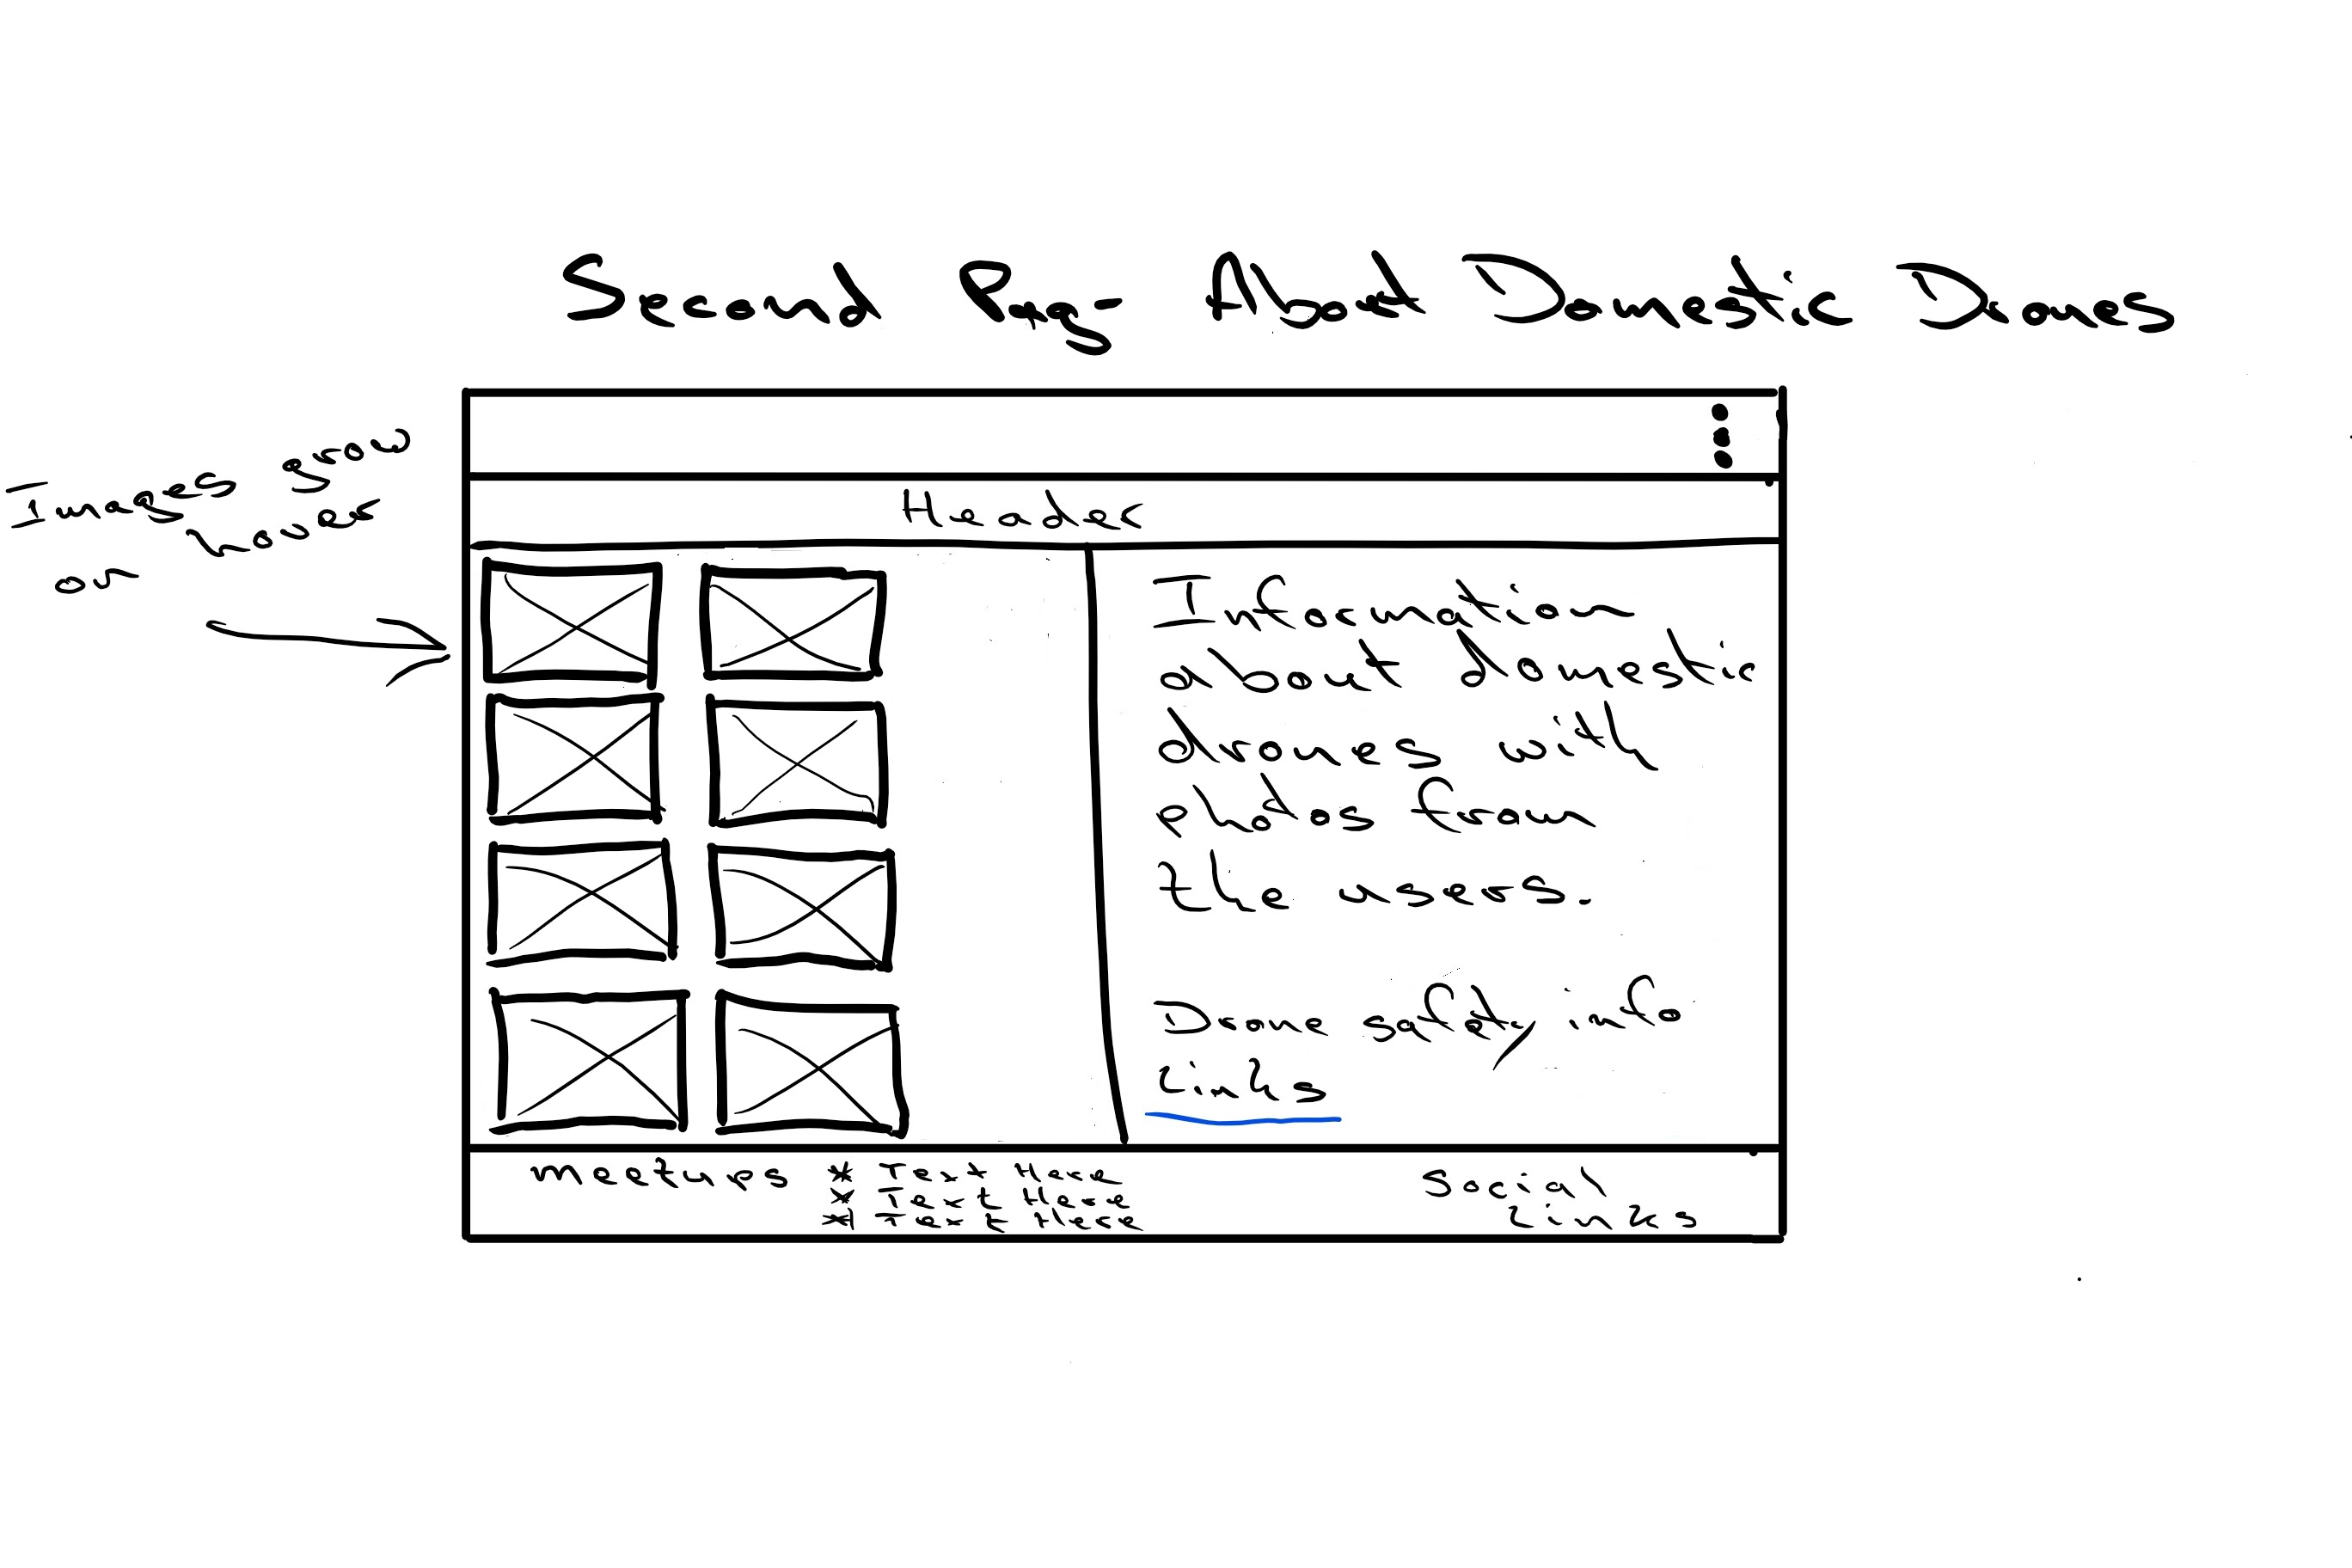 Second Pag- About Domestic Drones
Images grow
on hover
Header
Information
about domestic
drones with
photos from
the users.
Drone safety info
Links
meetures * Text Here
* Text Here
* Text Here
Social
Links